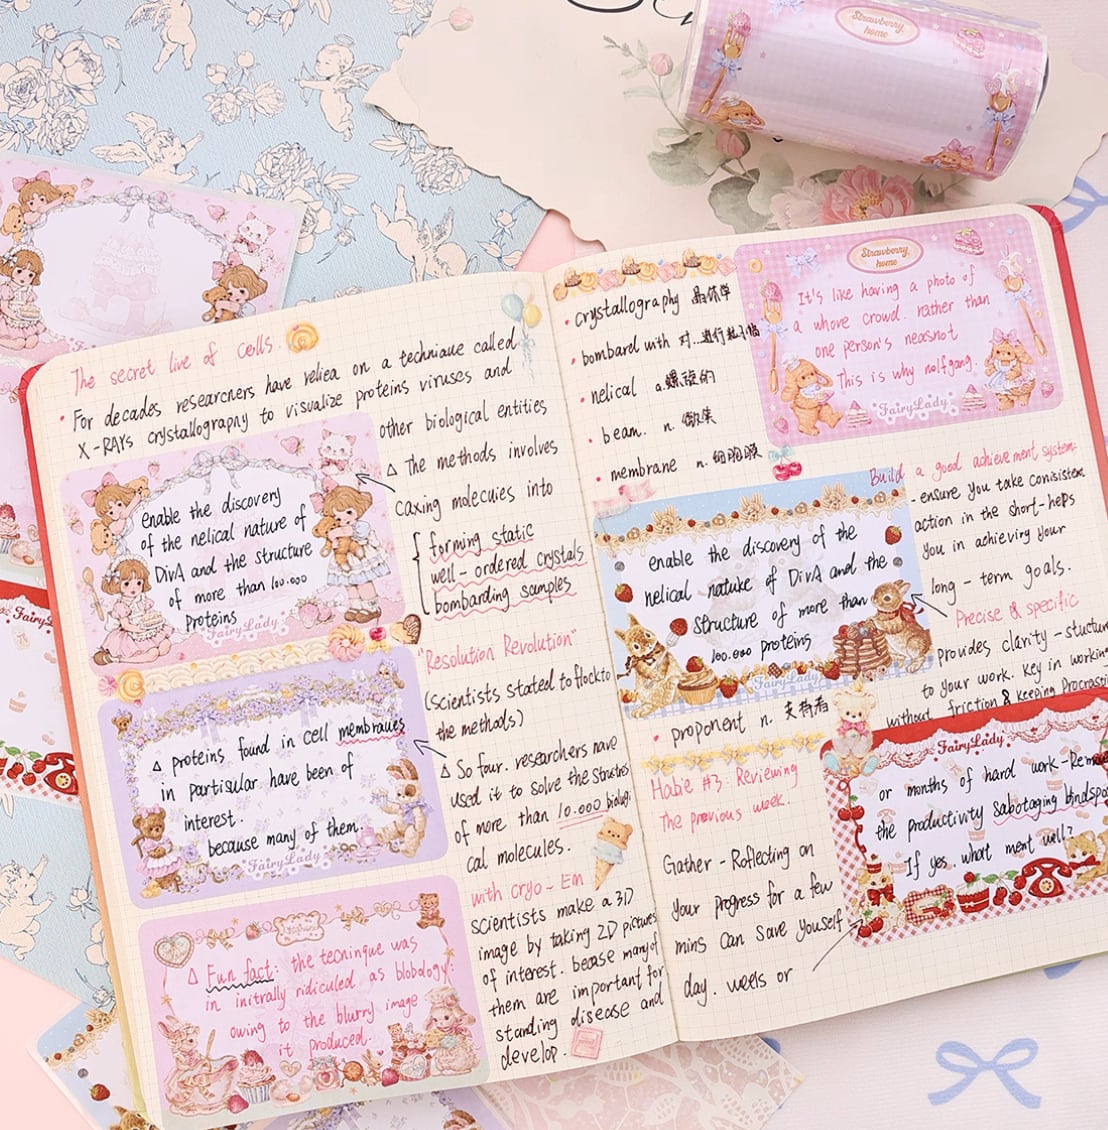 The secret live of cells.
• For decades researcners have reliea on a technique called
X-RAYs crystallograpny to visualize proteins viruses and
other biological entities
△ The methods involves
caxing molecuies into
forming static
well-ordered crystals
bombarding samples
enable the discovery
of the nelical nature of
DivA and the structure
of more than 100.000
proteins
FairyLady
"Resolution Revolution"
(scientists stated to flock to
the methods)
△ So four. researchers nave
used it to solve the structures
of more than 10.000 biologi
cal molecules.
△ proteins found in cell membraues
in partisular have been of
interest.
because many of them.
FairyLady
with cryo-Em
scientists make a 3D
image by taking 2D pictures
of interest. becase many of
them are important for
standing disease and
develop.
△ Fun fact: the tecninque was
in initrally ridiculed as blobology:
owing to the blurry image
it produced.
• crystallography
• bombard with 对...进行
• nelical a.螺旋的
• beam. n.
• membrane n.
Strawberry
home
It's like having a photo of
a whove crowd. rather than
one person's neasnot
This is why nolfgang.
FairyLady
Build a good achievement system:
- ensure you take consistent
action in the short-heps
you in achieviry your
long-term goals.
enable the discovery of the
nelical natuke of DivA and the
structure of more than
100.000 proteins
FairyLady
Precise & specific
Provides clarity - stucture
to your work. Key in working
without friction & keeping
• proponent n. 支持者
Habie #3: Reviewing
The previous week.
Gather - Roflecting on
your progress for a few
mins can save youself
day. weels or
FairyLady
or months of hard work-Remove
the productivity sabotaging blindspots
If yes. what ment well?
Strawberry
home